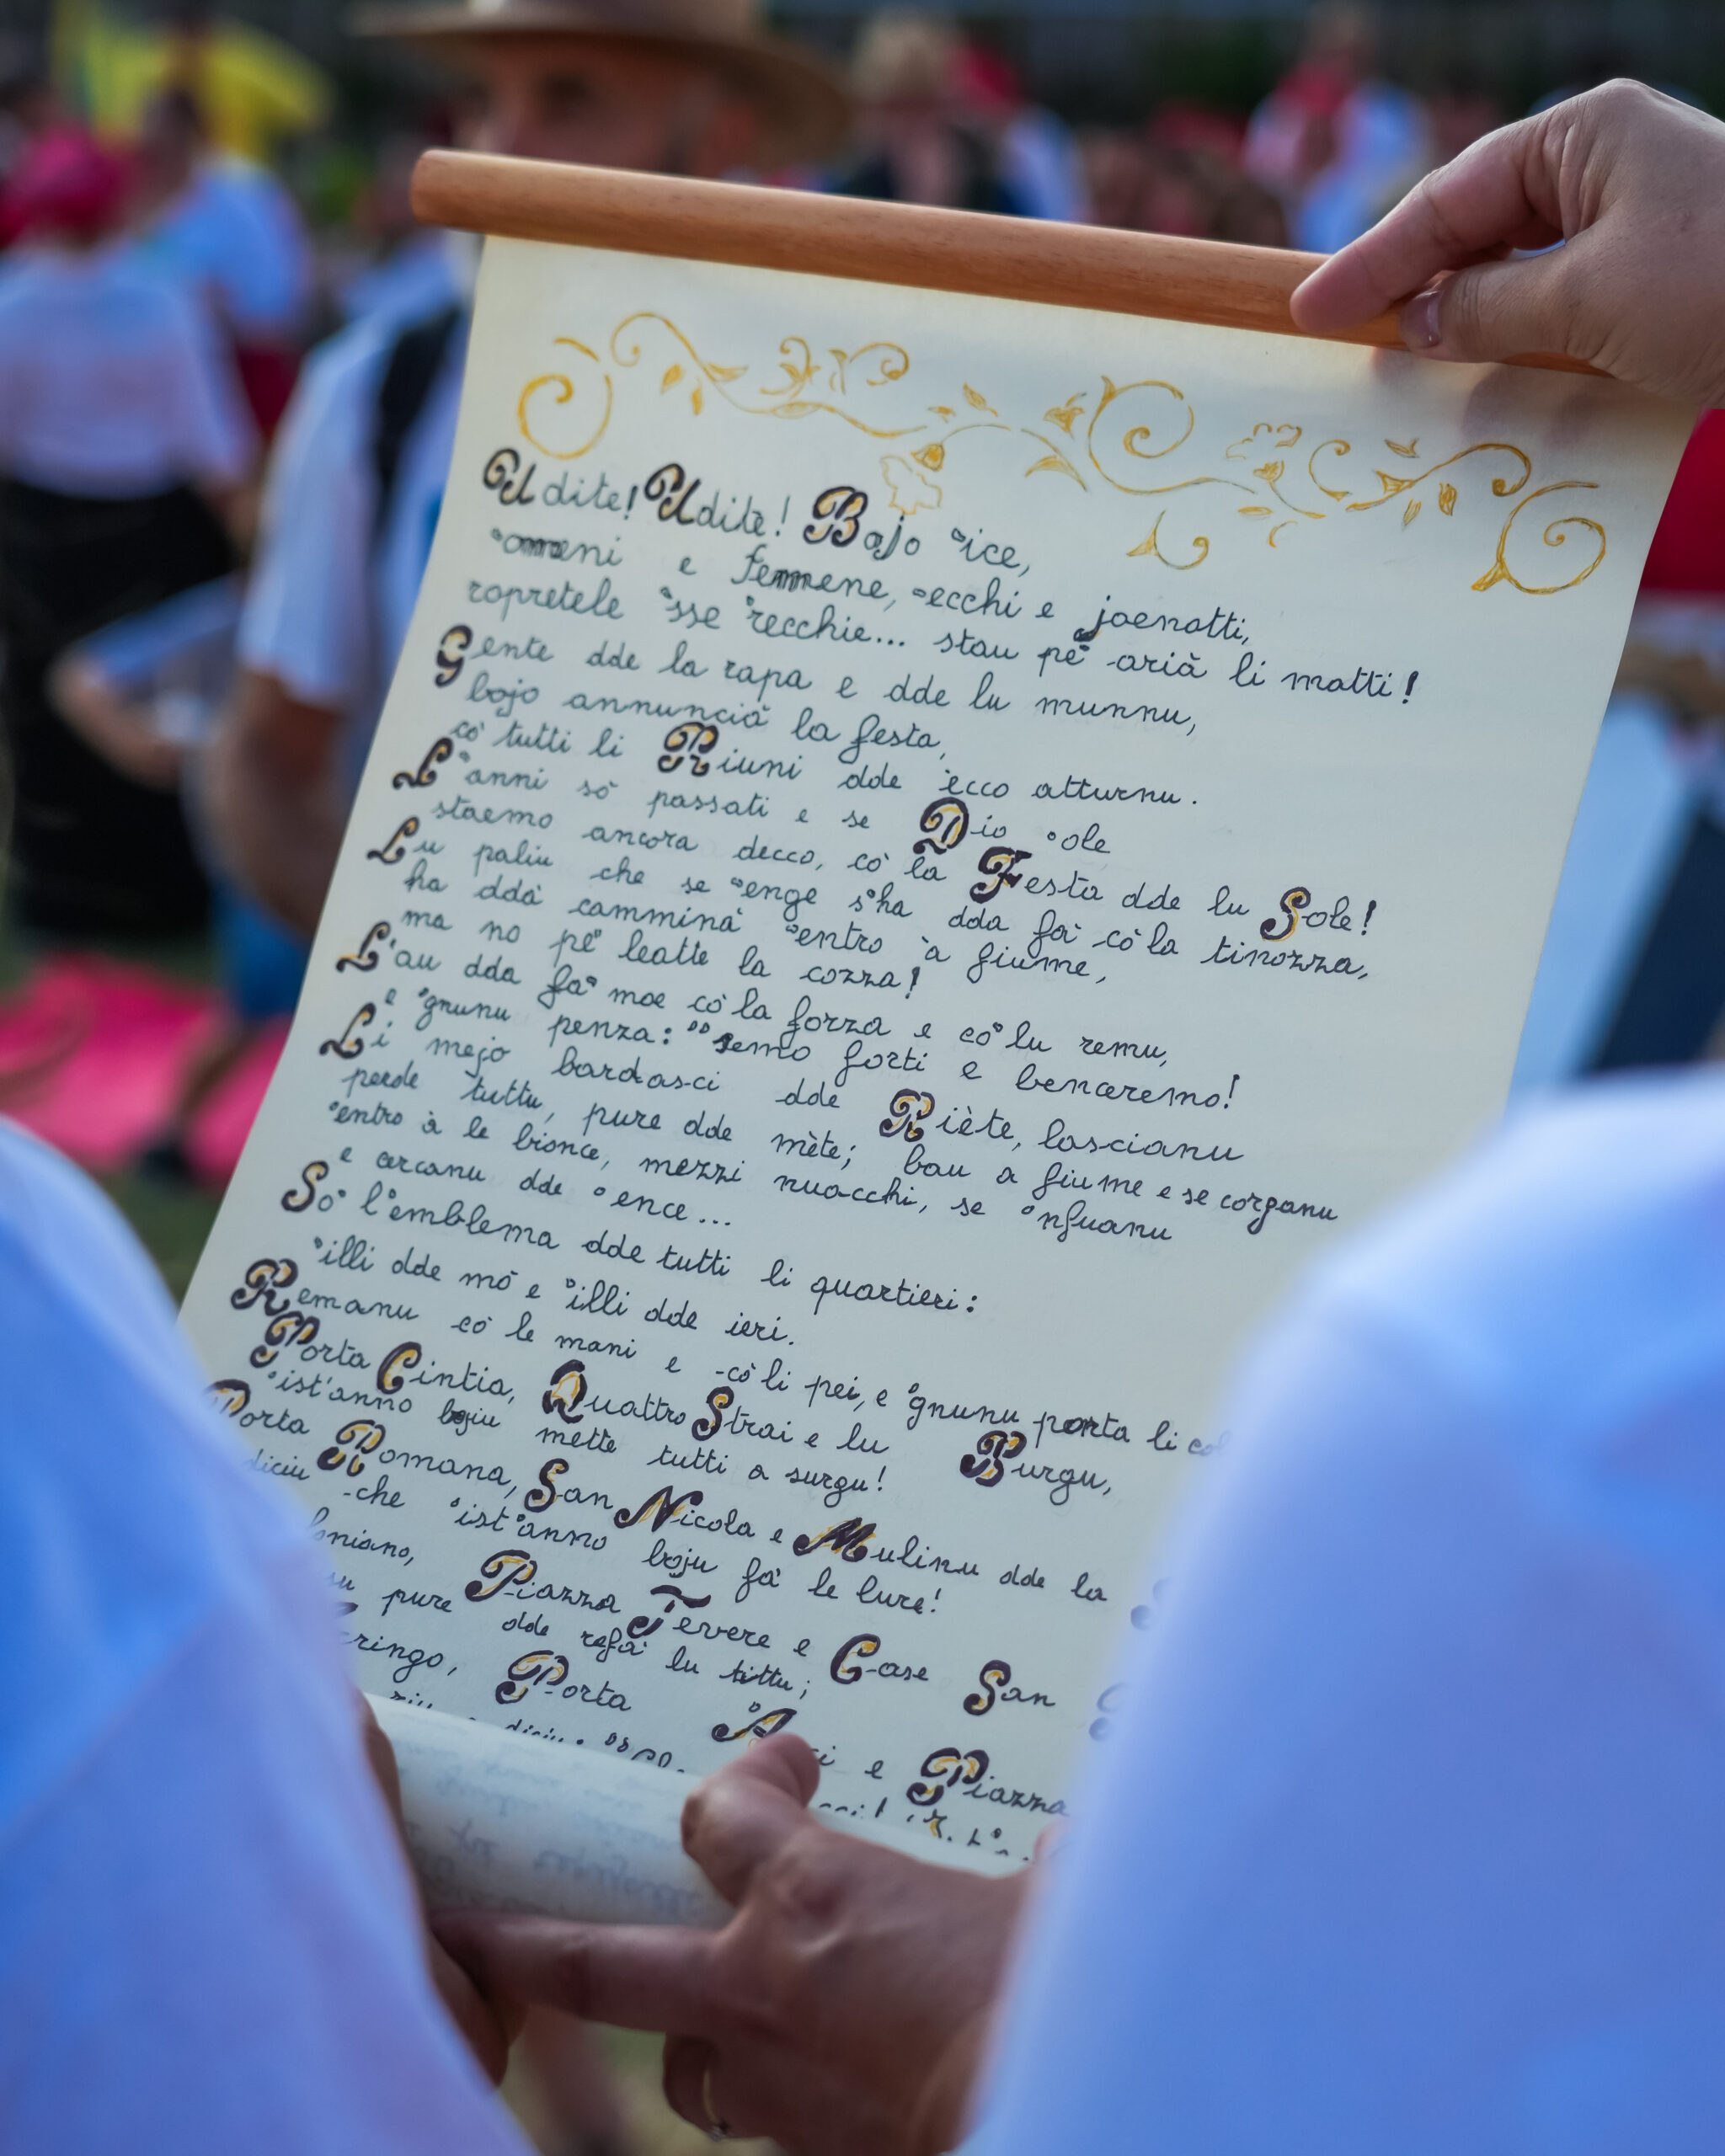 Udite! Udite! Bajo °ice,
°ommeni e femmene, °ecchi e joenotti,
ropretele °sse °recchie... stau pe° arià li matti!
Gente dde la rapa e dde lu munnu,
bojo annuncià la festa,
cò tutti li Riuni dde °ecco atturnu.
L'anni sò passati e se Dio °ole
staemo ancora decco, cò la Festa dde lu Sole!
Lu paliu che se °enge s'ha dda fà cò la tinozza,
ha ddà camminà °entro à fiume,
ma no pe° leatte la cozza!
L'au dda fa° moe cò la forza e cò lu remu,
e °gnunu penza: °°semo forti e benceremo!
Li mejo bardasci dde Riète, lascianu
perde tuttu, pure dde mète; bau a fiume e se corganu
°entro à le bionce, mezzi nuacchi, se °nfuanu
e cercanu dde °ence...
Sò l'emblema dde tutti li quartieri:
°illi dde mò e °illi dde ieri.
Remanu cò le mani e cò li pei, e °gnunu porta li
Porta Cintia, Quattro Strai e lu Burgu,
°ist'anno boju mette tutti a surgu!
Porta Romana, San Nicola e Mulinu dde la
diciu che °ist°anno boju fà le lure!
Piazza Tevere e Case San
pure dde refà lu tittu;
Porta e Piazza